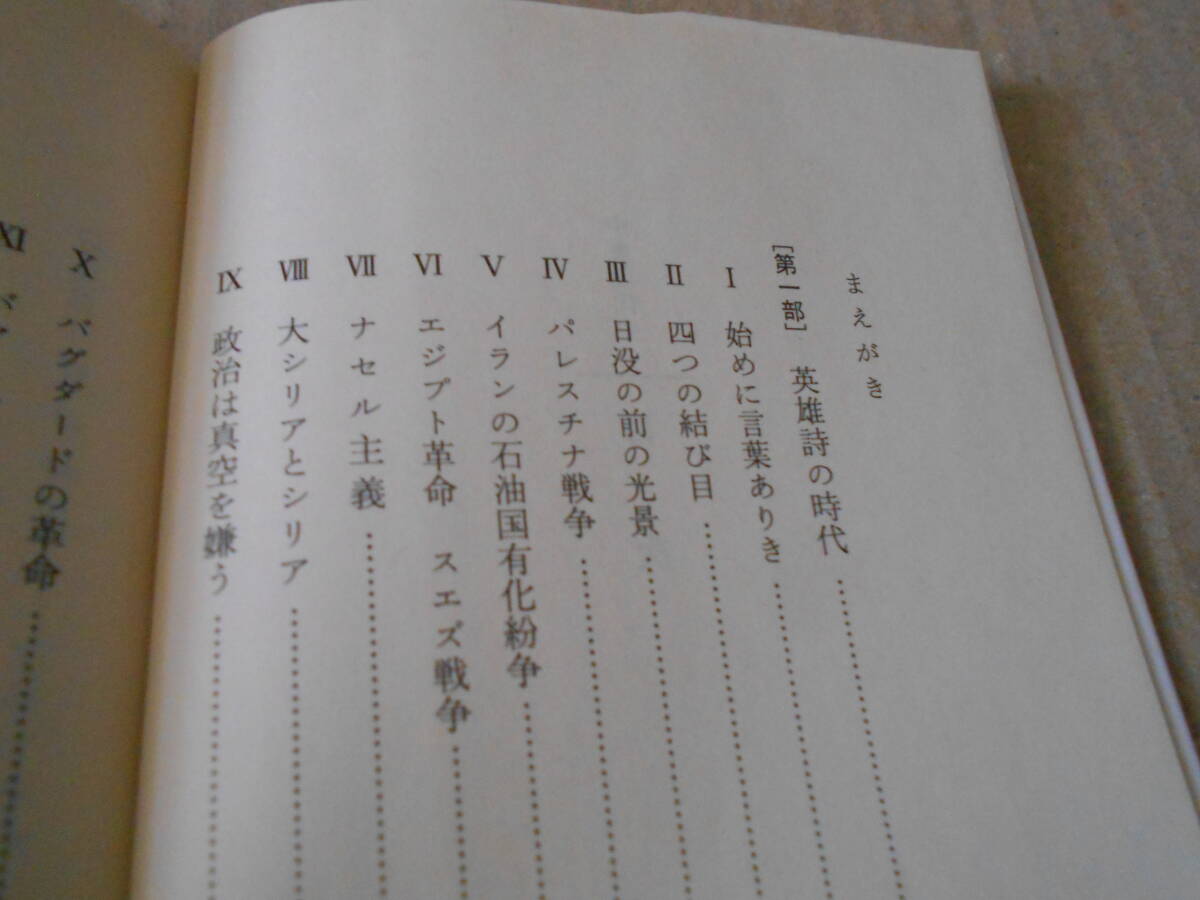 まえがき
［第一部］ 英雄詩の時代
Ⅰ 始めに言葉ありき
Ⅱ 四つの結び目
Ⅲ 日没の前の光景
Ⅳ パレスチナ戦争
Ⅴ イランの石油国有化紛争
Ⅵ エジプト革命 スエズ戦争
Ⅶ ナセル主義
Ⅷ 大シリアとシリア
Ⅸ 政治は真空を嫌う
Ⅹ バグダードの革命
Ⅺ